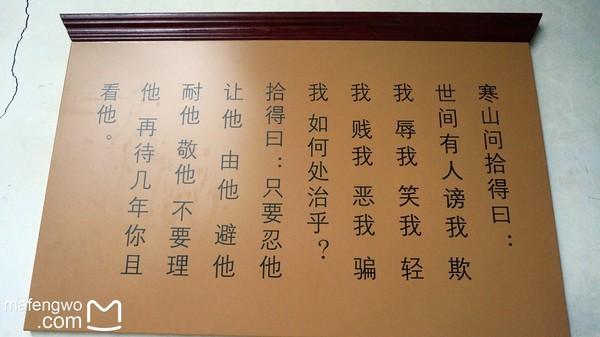 寒山问拾得曰：
世间有人谤我 欺
我 辱我 笑我 轻
我 贱我 恶我 骗
我 如何处治乎？
拾得曰：只要忍他
让他 由他 避他
耐他 敬他 不要理
他 再待几年你且
看他。
mafengwo
.com